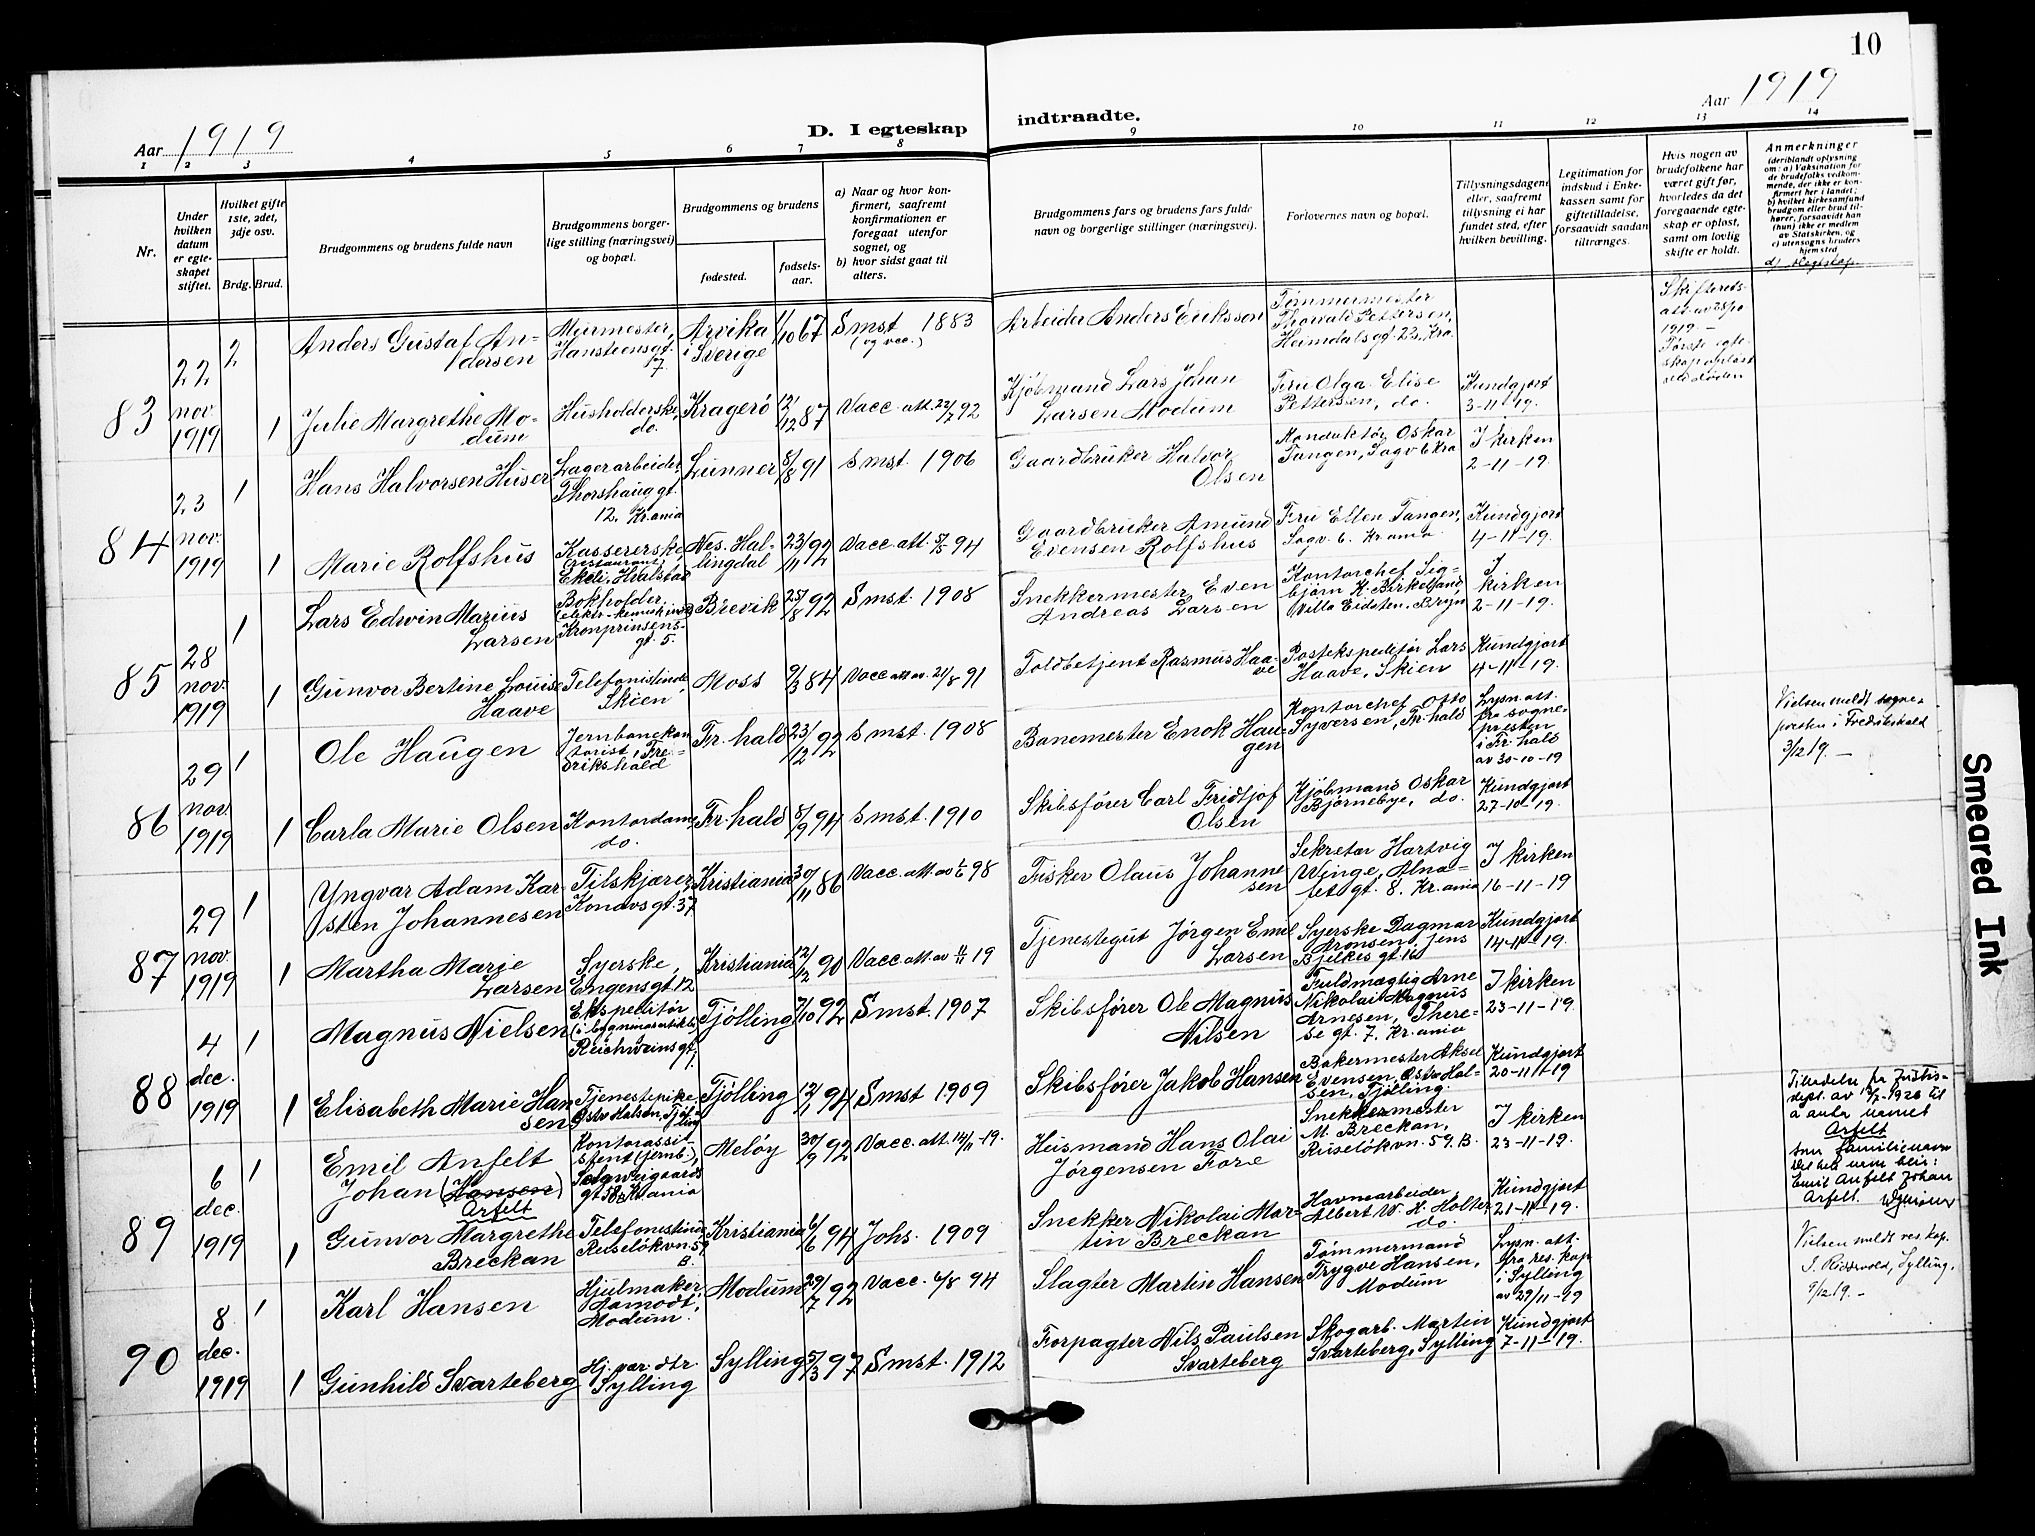 10
Aar 1919
D. I egteskap
indtraadte.
Aar 1919
1 2 3 4 5 6 7 8
9 10 11 12 13 14
Nr.
Under
hvilken
datum
er egte-
skapet
stiftet.
Hvilket gifte
1ste, 2det,
3dje osv.
Brdg. Brud.
Brudgommens og brudens fulde navn
Brudgommens borger-
lige stilling (næringsvei)
og bopæl.
Brudgommens og brudens
fødested.
fødsels-
aar.
a) Naar og hvor kon-
firmert, saafremt
konfirmationen er
foregaat utenfor
sognet, og
b) hvor sidst gaat til
alters.
Brudgommens fars og brudens fars fulde
navn og borgerlige stillinger (næringsvei).
Forlovernes navn og bopæl.
Tillysningsdagene
eller, saafremt
tillysning ei har
fundet sted, efter
hvilken bevilling.
Legitimation for
indskud i Enke-
kassen samt for
giftetilladelse,
forsaavidt saadan
tiltrænges.
Hvis nogen av
brudefolkene har
været gift før,
hvorledes da det
foregaaende egte-
skap er opløst,
samt om lovlig
skifte er holdt.
Anmerkninger
(deriblandt oplysning
om: a) Vaksination for
de brudefolks vedkom-
mende, der ikke er kon-
firmert her i landet;
b) hvilket kirkesamfund
brudgom eller brud til-
hører, forsaavidt han
(hun) ikke er medlem
av Statskirken, og
c) utensogns bruders
hjemsted.
83
22
nov.
1919
2
Anders Gustaf An-
dersen
Murmester,
Hansteensgt.
7.
Arvika
i Sverige
1/10 67
S mst 1883
(og vac.)
Arbeider Anders Eriksson
Tømmermester
Thorvald Pettersen,
Heimdalsgt 22, Kra.
Skifterets-
1919. -
Første egte-
skap opløst
ved døden
1
Julie Margrethe Mo-
dum
Husholderske,
do.
Kragerö
2/12 87
Vacc. att. 22/7 92
Kjöbmand Lars Johan
Larsen Modum
Fru Olga Elise
Pettersen, do.
Kundgjort
3-11-19.
84
23
nov.
1919
1
Hans Halvorsen Huser
Lagerarbeider,
Thorshauggt.
12, Kr.ania
Lunner
8/8 91
S mst. 1906
Gaardbruker Halvor
Olsen
Konduktør Oskar
Tangen, Sagv 6 Kra
I kirken
2-11-19.
1
Marie Rolfshus
Kassererske
(restaurant)
Ekeli, Hvalstad
Nes. Hal-
lingdal
23/11 92
Vacc. att. 5/5 94
Gaardbruker Amund
Evensen Rolfshus
Fru Ellen Tangen,
Sagv. 6. Kr.ania.
Kundgjort
4-11-19.
85
28
nov.
1919
1
Lars Edwin Marius
Larsen
Bokholder,
Kronprinsens-
gt. 5.
Brevik
25/8 92
S mst. 1908
Snekkermester Even
Andreas Larsen
Kontorchef Sig-
bjørn K. Birkeland,
Villa Eidsten, Bryn
I
kirken
2-11-19.
1
Gunvor Bertine Louise
Haave
Telefonistinde,
Skien
Moss
9/3 84
Vacc att av. 21/8 91
Toldbetjent Rasmus Haa-
ve
Postekspeditør Lars
Haave, Skien
Kundgjort
4-11-19.
86
29
nov.
1919
1
Ole Haugen
Jernbanekon
torist, Fre-
drikshald
Fr. hald
23/12 92
S mst. 1908
Banemester Enok Hau-
gen
Kontorchef Otto
Syversen, Fr. hald
Lysn. att.
fra sogne-
presten
i Fr hald
av 30-10-19
Vielsen meldt sogne-
presten i Fredrikshald
3/12 19. -
1
Carla Marie Olsen
Kontordame,
do.
Fr. hald
8/9 94
S mst. 1910
Skibsfører Carl Fridtjof
Olsen
Kjøbmand Oskar
Bjørnebye, do.
Kundgjort
27-10-19.
87
29
nov.
1919
1
Yngvar Adam Kar-
sten Johannesen
Tilskjærer,
Konowsgt. 37
Kristiania
30/11 86
Vacc. att. av 1/6 98
Fisker Olaus Johanne
sen
Sekretær Hartvig
Winge, Alna-
betgt. 8. Kr. ania
I kirken
16-11-19
1
Martha Marie
Larsen
Syerske,
Engensgt. 12
Kristiania
12/12 90
Vacc. att. av 11/11 19
Tjenestegut Jørgen Emil
Larsen
Syerske Dagmar
Aronsen, Jens
Bjelkes gt. 16
Kundgjort
14-11-19.
88
4
dec.
1919
1
Magnus Nielsen
Ekspeditør
Reichweinsgt.
Tjölling
7/10 92
S mst. 1907
Skibsfører Ole Magnus
Nilsen
Fuldmægtig Arne
Nikolai Magnus
Arnesen, There-
se gt. 7. Kr. ania
I kirken
23-11-19.
1
Elisabeth Marie Han
sen
Tjenestepike
Østre Halsen, Tjøl-
ling
Tjölling
12/1 94
S mst 1909
Skibsfører Jakob Hansen
Bakermester Aksel
Evensen, Østre Hal-
sen, Tjølling.
Kundgjort
20-11-19
89
6
dec.
1919
1
Emil Anfelt
Johan (Hansen)
Arfelt
Kontorassi-
stent (jernb.),
Meløy
30/9 92
Vacc. att. 14/11-19.
Husmand Hans Olai
Jørgensen Fore
Snekkermester
M. Breckan,
Ruseløkvn. 59. B.
I kirken
23-11-19.
Tilladelse fra Justis-
dept. av 1920 til
å anta navnet
Arfelt
som familienavn
Det hele navn blir:
Emil Anfelt Johan
Arfelt.
1
Gunvor Margrethe
Breckan
Telefonistinde
Ruseløkvn. 59
B.
Kristiania
6/6 94
Johs. 1909
Snekker Nikolai Mar-
tin Breckan
Havnearbeider
Albert W. K. Holter
do.
Kundgjort
21-11-19.
90
8
dec.
1919
1
Karl Hansen
Hjulmaker,
Aamodt,
Modum.
Modum
29/7 92
Vacc. 4/8 94
Slagter Martin Hansen
Tømmermand
Trygve Hansen,
Modum
Lysn. att.
fra res. kap
i Sylling
av 29/11-19
Vielsen meldt res kap.
Sylling,
9/12 19. -
1
Gunhild Svarteberg
Hj. vær. dtr.
Sylling
Sylling
5/3 97
S mst. 1912
Forpagter Nils Paulsen
Svarteberg
Skogarb. Martin
Svarteberg, Sylling
Kundgjort
7-11-19.
Smeared Ink